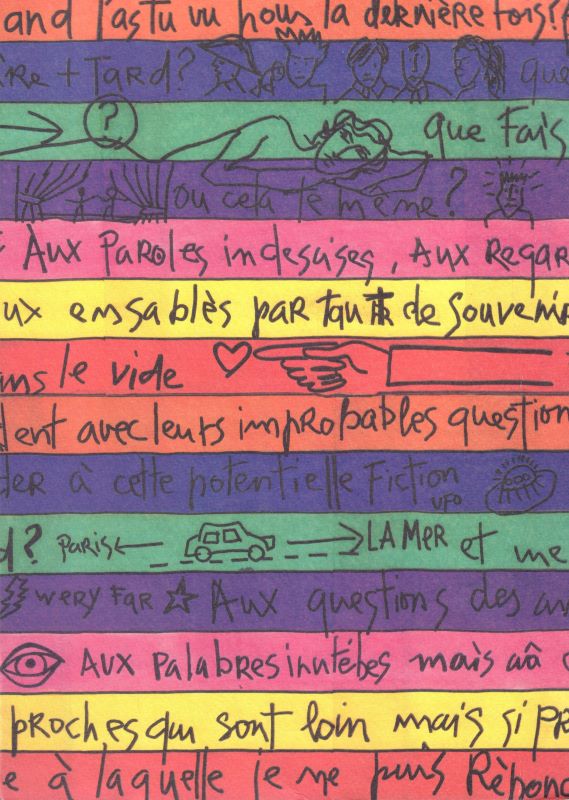 and l'as tu vu nous la dernière fois!?
ire + Tard? que
? que Fais
ou cela te mème?
Aux Paroles indesises, Aux Regar
ux ensablès par tant de souvenir
ans le vide
dent avec leurs improbables question
der à cette potentielle Fiction UFO
d? PARIS LA MER et me
wery Far Aux questions des am
Aux palabres mais
proches qui sont loin mais si pr
e à laquelle je ne puis Rèpond